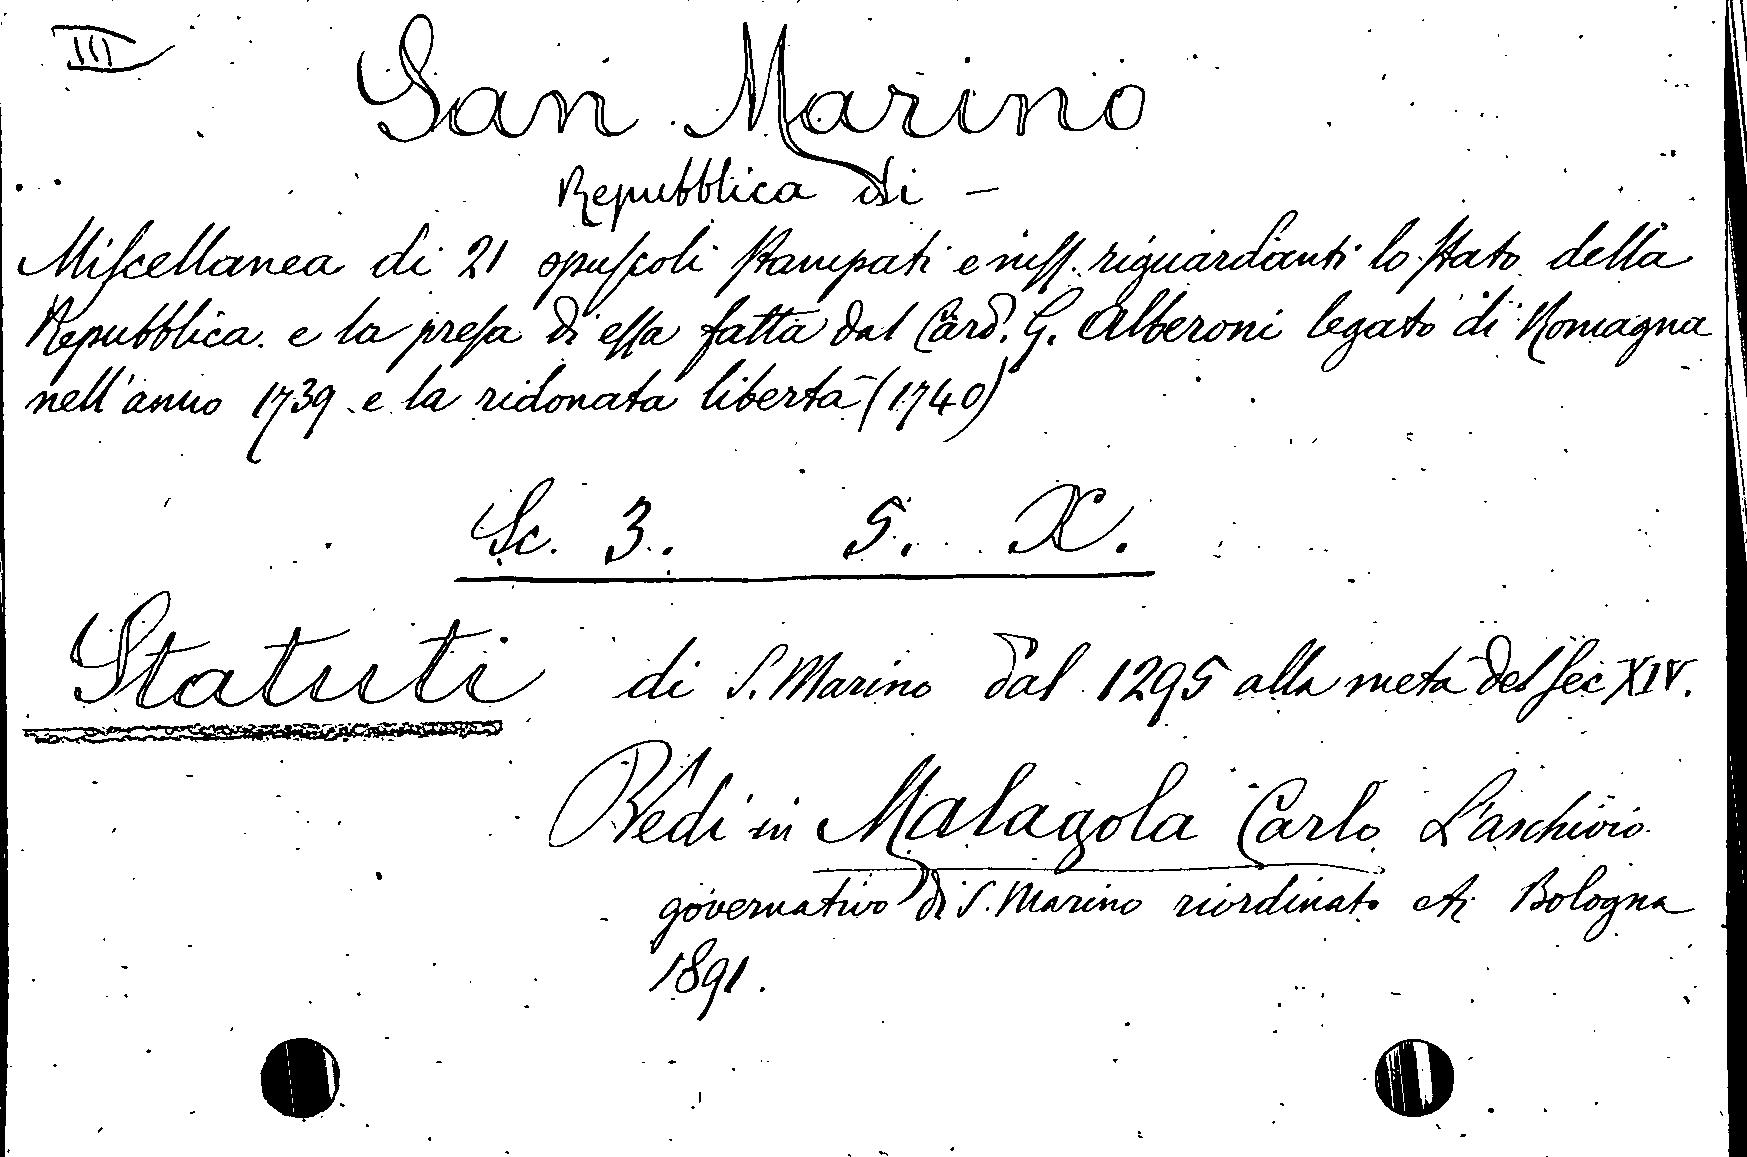 III
San Marino
Repubblica di —
Miscellanea di 21 opuscoli stampati e mss. riguardanti lo stato della
Repubblica e la presa di essa fatta dal Card. G. Alberoni legato di Romagna
nell'anno 1739 e la ridonata libertà (1740)
Sc. 3. 5. X.
Statuti di S. Marino dal 1295 alla metà del sec XIV.
Vedi in Malagola Carlo L'archivio
governativo di S. Marino riordinato etc Bologna
1891.